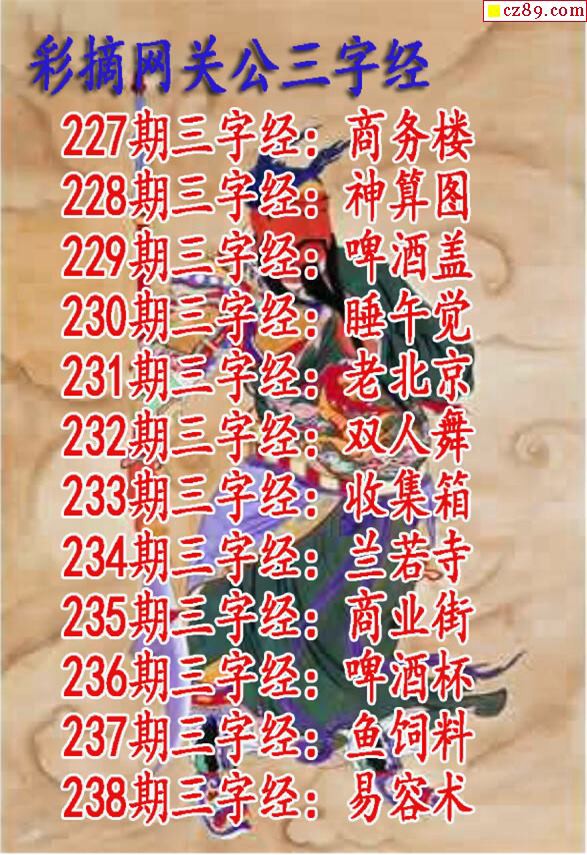 cz89.com
彩摘网关公三字经
227期三字经：商务楼
228期三字经：神算图
229期三字经：啤酒盖
230期三字经：睡午觉
231期三字经：老北京
232期三字经：双人舞
233期三字经：收集箱
234期三字经：兰若寺
235期三字经：商业街
236期三字经：啤酒杯
237期三字经：鱼饲料
238期三字经：易容术